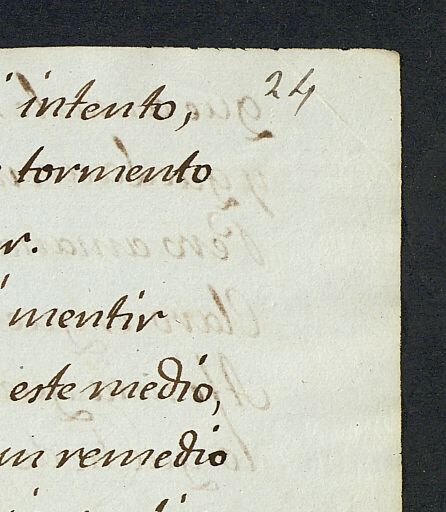 24
intento,
tormento
r.
mentir
este medio,
un remedio